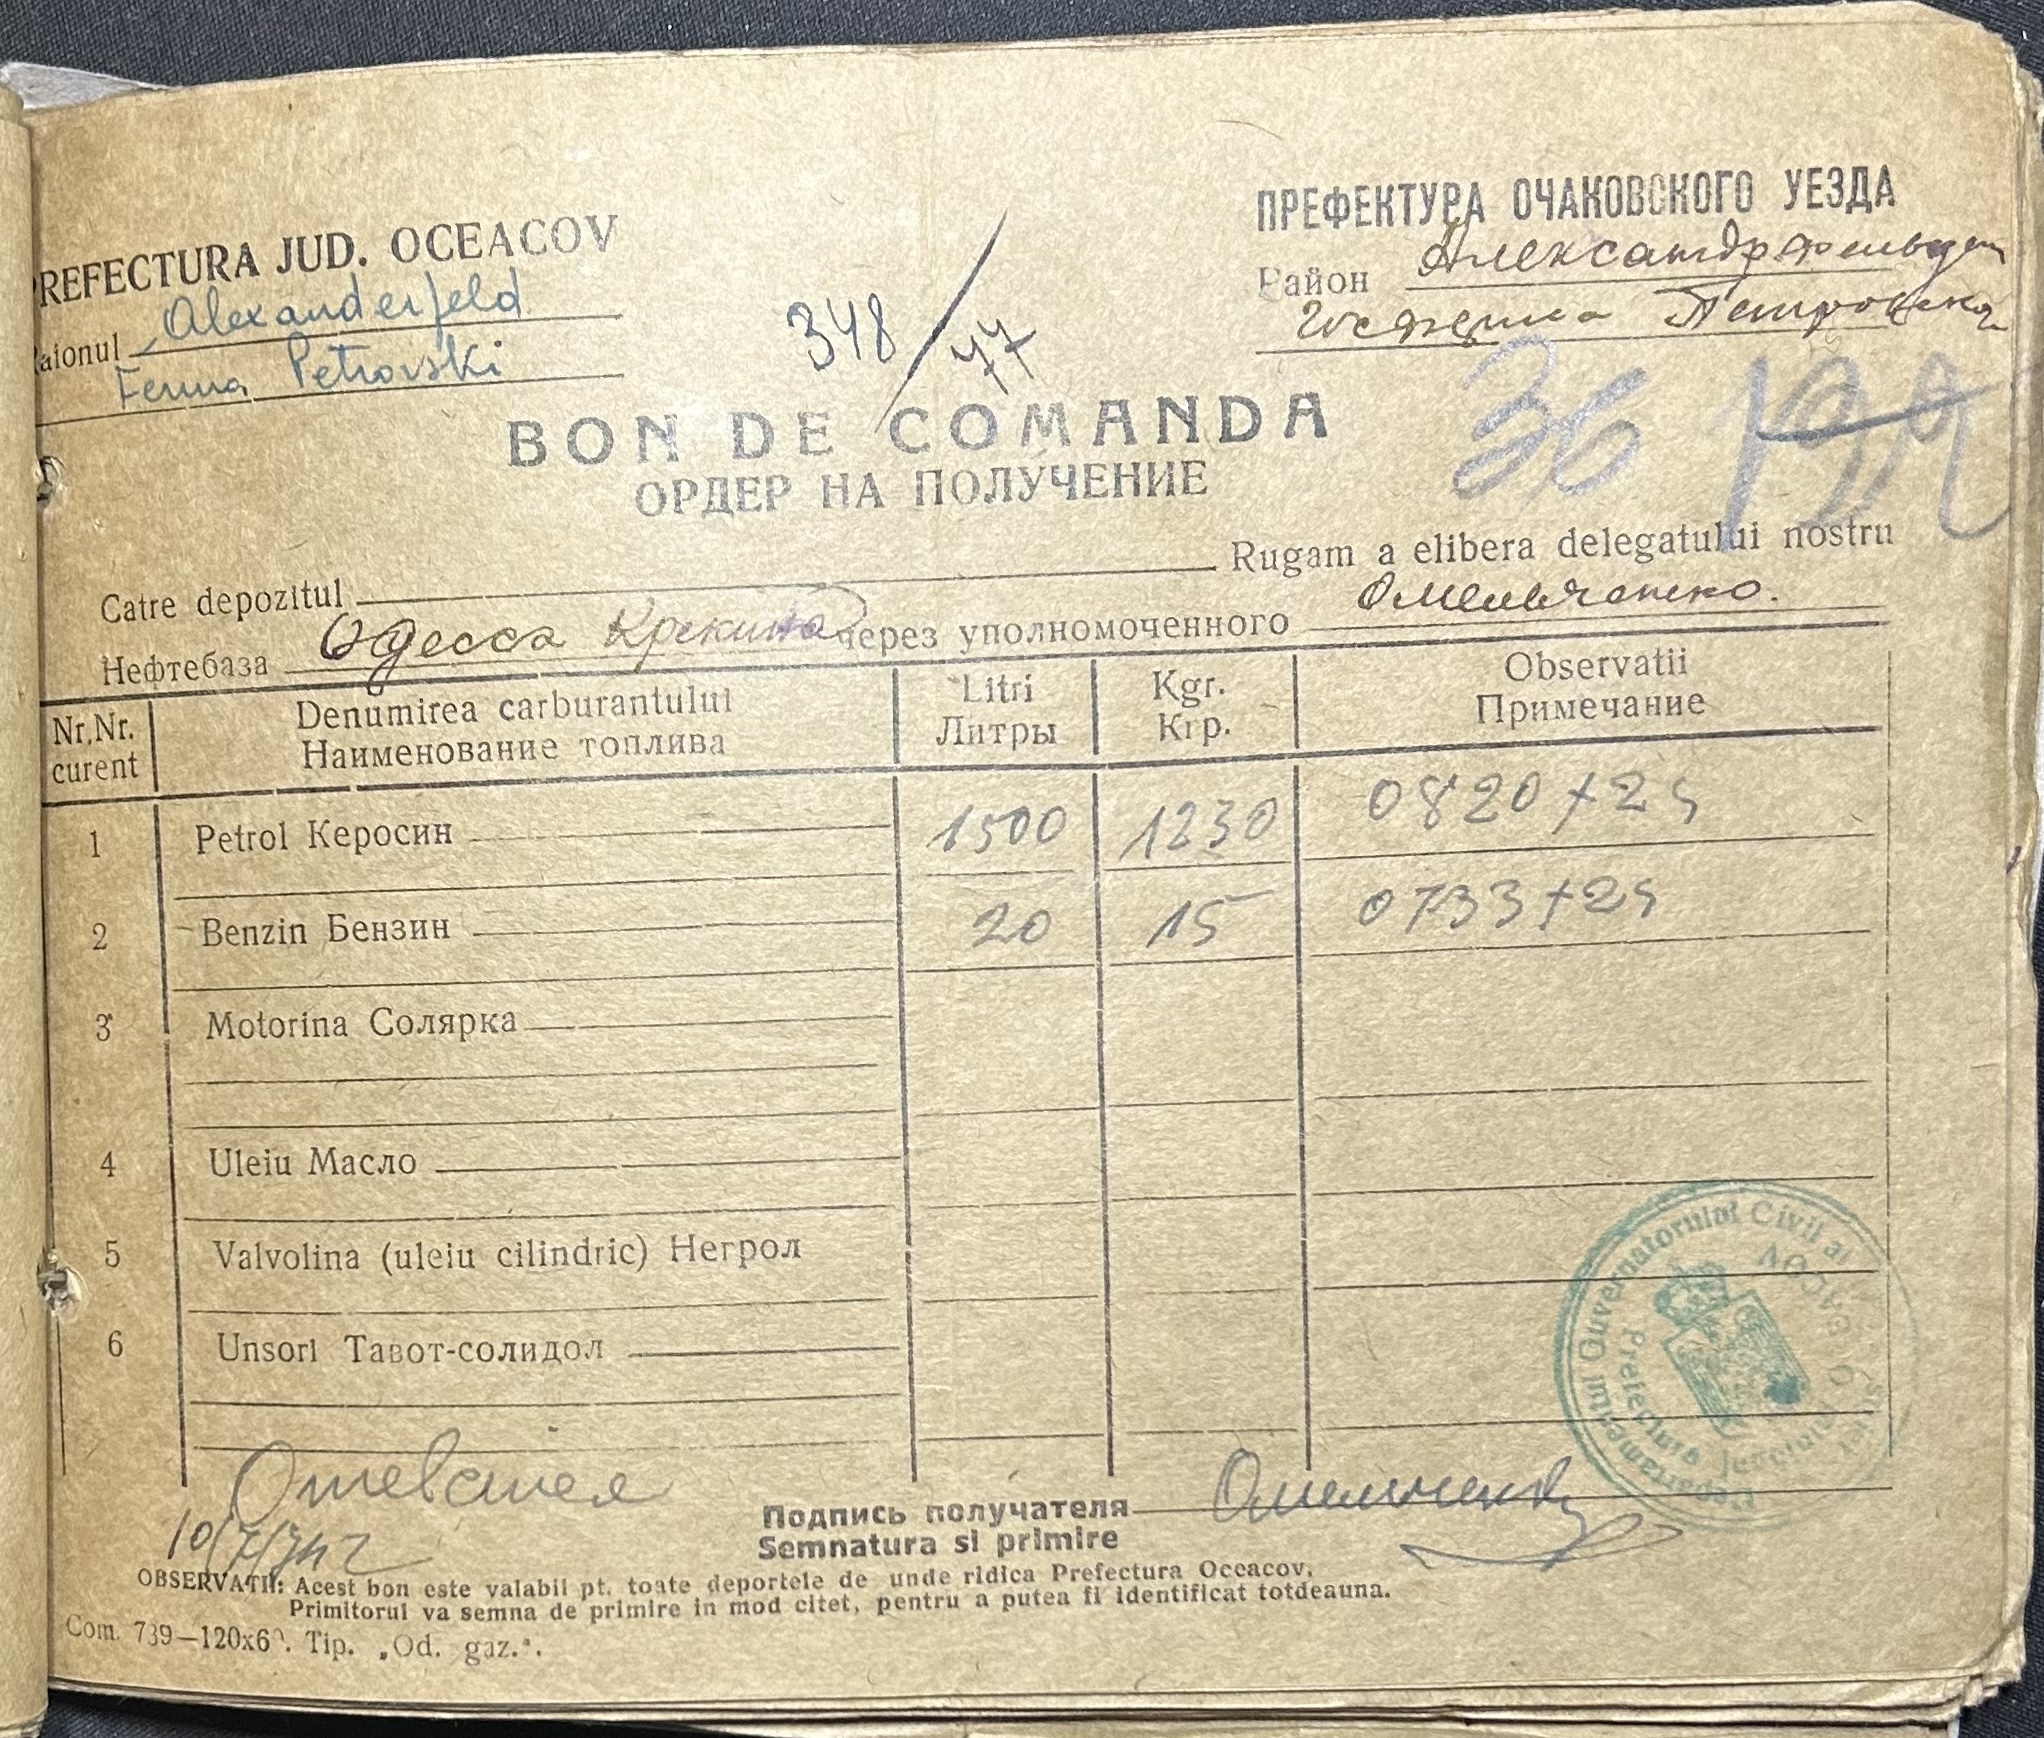 PREFECTURA JUD. OCEACOV
Raionul Alexanderfeld
Ferma Petrovski
348/77
ПРЕФЕКТУРА ОЧАКОВСКОГО УЕЗДА
Район Александрфельдский
Петровская
BON DE COMANDA
ОРДЕР НА ПОЛУЧЕНИЕ
36
Catre depozitul Rugam a elibera delegatului nostru
Нефтебаза Одесса Крекинг через уполномоченного Омельченко.
Nr.Nr. curent
Denumirea carburantului
Наименование топлива
Litri
Литры
Kgr.
Кгр.
Observatii
Примечание
1 Petrol Керосин 1500 1230 0820 +24
2 Benzin Бензин 20 15 0733 +24
3 Motorina Солярка
4 Uleiu Масло
5 Valvolina (uleiu cilindric) Негрол
6 Unsori Тавот-солидол
Guvernatorului Civil al
Prefectura Judetului
OCEACOV
10/7/342
Подпись получателя Омельченко
Semnatura si primire
OBSERVATII: Acest bon este valabil pt. toate deportele de unde ridica Prefectura Oceacov.
Primitorul va semna de primire in mod citet, pentru a putea fi identificat totdeauna.
Com. 739—120x60. Tip. „Od. gaz.“.